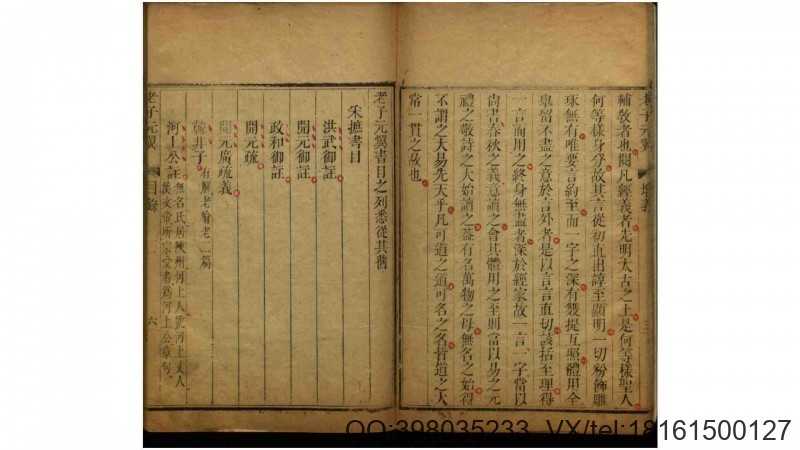 補敎者也閱凡經義者先明太古之上是何等樣聖人
何等樣身分故其言從初直出諄至顯明一切粉飾雕
琢無有唯要言約至而一字之深有幾提互照體用全
畢留不盡之意於言外者是以言言直切該括至理得
一言而用之終身無盡者深於經家故一言一字當以
尚書春秋之義意讀之會其體用之至則當以易之元
禮之敬詩之大始讀之蓋有名萬物之母無名之始得
不謂之大易先天乎凡可道之道可名之名皆道之大
常一貫之故也
老子元翼書目之列悉從其舊
采摭書目
洪武御註
開元御註
政和御註
開元疏
開元廣疏義
韓非子 有解老喻老二篇
河上公註 無名氏居陝州河上人號河上丈人
漢文帝所宗
老子元翼 目錄 六
老子元翼
QQ:398035233 VX/tel:18161500127